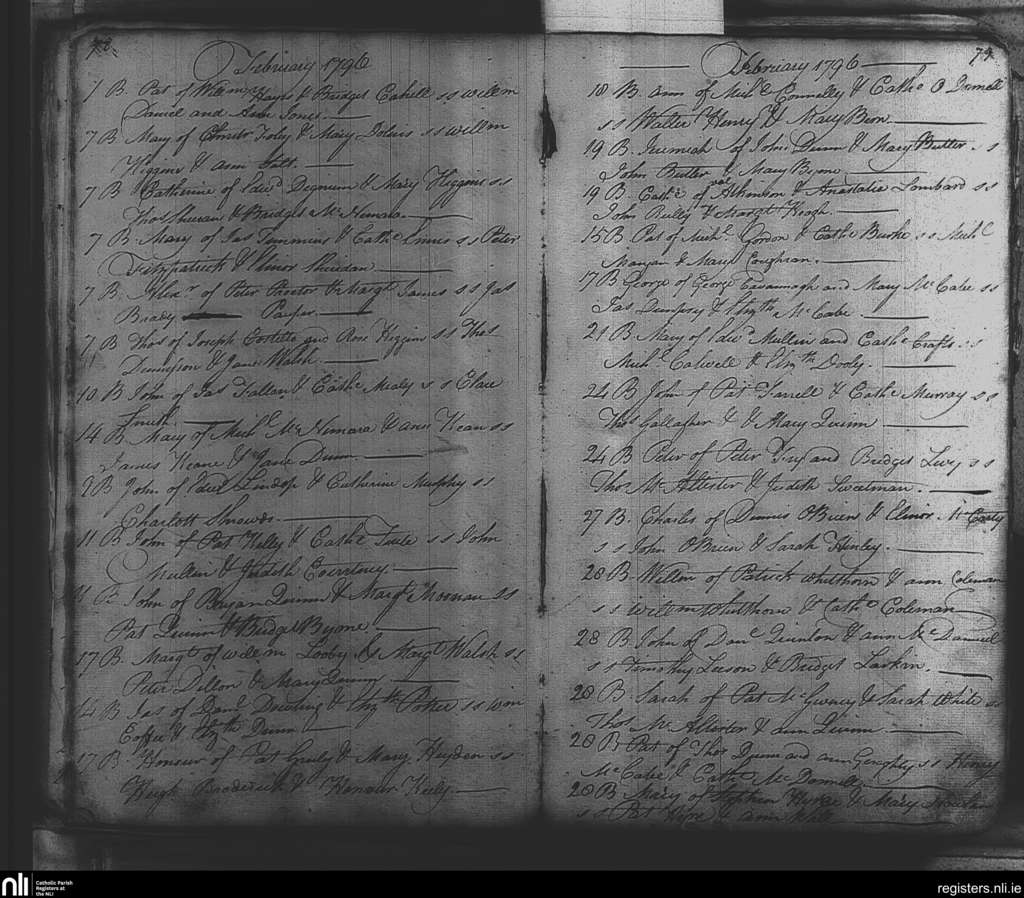 78.
February 1796
7 B. Pat of Willm Hayes & Bridget Cahill s s willm
Daniel and Jones.
7 B. Mary of Foley & Mary s s willm
Higgins & ann
7 B Catherine of Edwd Degnum & Mary Higgins s s
Thos & Bridget Mc Nemara.
7 B. Mary of Jas Timmins & Cathe Ennis s s Peter
Fitzpatrick & Elinor Sheridan
7 B. Alexr of Peter Procter & Margt James s s Jas
Brady
7 B Thos of Joseph Costello and Rose Higgins s s Thos
Dennison & Jane Walsh
10 B John of Jas Fallan & Cathe Mealy s s Clare
Smith.
14 B Mary of Michl Mc Nemara & ann Kean s s
James Keane & Jane Dunn
9 B John of Edwd Lindop & Catherine Murphy s s
Charlott
11 B John of Pat Kelly & Cathe Tuite s s John
Mullin & Judith
11 B John of Bryan Quinn & Margt Noonan s s
Pat Quinn & Bridget Byone.
17 B. Margt of willm Looby & Margt Walsh s s
Peter Dillon & Mary Quinn
14 B Jas of Danl Dowling & Elizth Potter s s wm
& Elizth Dunn
17 B Honour of Pat & Mary Heyden s s
Hugh Broderick & Honour Kiely
79
February 1796
18 B. ann of Michl Connelly & Cathe O Donnell
s s Walter Henry & Mary Bion.
19 B. Jeremiah of John Dunn & Mary Butler. s s
John Butler & Mary Byrne
19 B. Cathe of Atkinson & Anastatia Lombard s s
John Reilly & Margt Keogh.
15 B Pat of Michl Gordon & Cathe Burke s s Michl
Mangan & Mary Coughran.
17 B George of George Cavannagh and Mary Mc Cabe s s
Jas Dempsy & Elizth Mc Cabe.
21 B. Mary of Edwd Mullin and Cathe Crafts. s s
Michl Calwell & Elizth Dooly.
24 B John of Pat Farrell & Cathe Murray s s
Thos Gallagher & & Mary Quinn
24 B Peter of Peter and Bridget Levy s s
Thos Mc Allister & Judith Sweetman.
27 B. Charles of Dennis OBrien & Elinor Mc Carty
s s John OBrien & Sarah Henley.
28 B Willm of Patrick whithorn & ann Coleman
s s willm whithorn & Cathe Coleman
28 B John of Danl Quinlon & ann Mc Danniel
s s Timothy Leeson & Bridget Larkin.
28 B. Sarah of Pat Mc Givney & Sarah White s s
Thos Mc Allister & ann Quinn.
28 B Pat of Thos Dunn and ann Geraghty s s Henry
Mc Cabe & Cathe Mc Donnell
28 B Mary of Stephen & Mary
s s Pat & ann
nli
Catholic Parish
Registers at
the NLI
registers.nli.ie